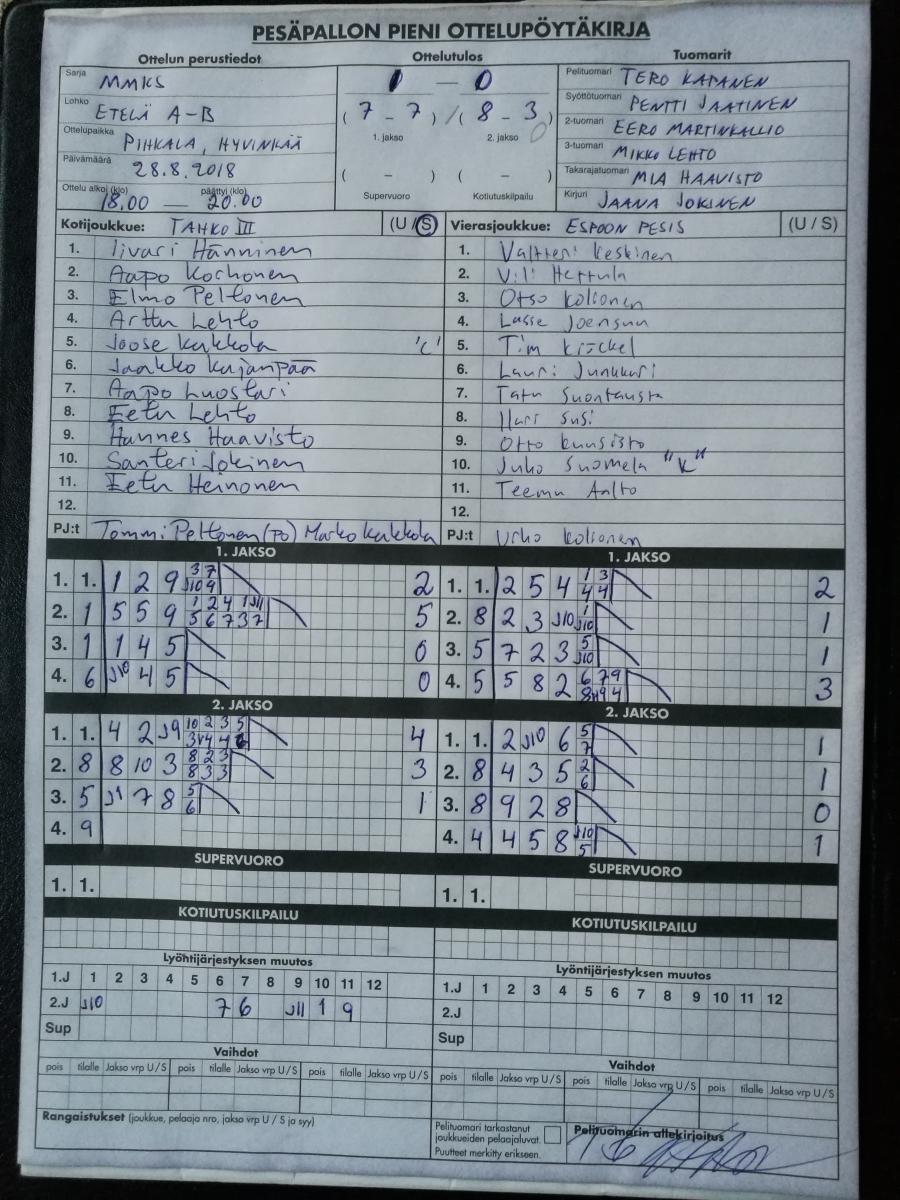 PESÄPALLON PIENI OTTELUPÖYTÄKIRJA
Ottelun perustiedot
Sarja MMKS
Lohko ETELÄ A-B
Ottelupaikka PIHKALA, HYVINKÄÄ
Päivämäärä 28.8.2018
Ottelu alkoi (klo) päättyi (klo)
18.00 — 20.00
Ottelutulos
1 — 0
(7 - 7) / (8 - 3)
1. jakso 2. jakso
( – ) ( – )
Supervuoro Kotiutuskilpailu
Tuomarit
Pelituomari TERO KAPANEN
Syöttötuomari PENTTI JAATINEN
2-tuomari EERO MARTINKALLIO
3-tuomari MIKKO LEHTO
Takarajatuomari MIA HAAVISTO
Kirjuri JAANA JOKINEN
Kotijoukkue: TAHKO III (U / S)
1. Iivari Hänninen
2. Aapo Korhonen
3. Elmo Peltonen
4. Arttu Lehto
5. Joose Kukkola "C"
6. Jaakko Kujanpää
7. Aapo Luostari
8. Eetu Lehto
9. Hannes Haavisto
10. Santeri Jokinen
11. Eetu Heinonen
12.
PJ:t Tommi Peltonen (PO) Marko Kukkola
Vierasjoukkue: ESPOON PESIS (U / S)
1. Valtteri Keskinen
2. Vili Herttula
3. Otso Kolionen
4. Lasse Joensuu
5. Tim Kröckel
6. Lauri Junkkari
7. Tatu Suontausta
8. Ilari Susi
9. Otto Kuusisto
10. Juho Suomela "K"
11. Teemu Aalto
12.
PJ:t Urho Kolionen
1. JAKSO
1. 1. 1 2 9 3 7 2
J10 9
2. 1 5 5 9 1 2 4 1 J11 5
5 6 7 3 7
3. 1 1 4 5 0
4. 6 J10 4 5 0
1. JAKSO
1. 1. 2 5 4 1 3 2
4 4
2. 8 2 3 J10 1 1
J10
3. 5 7 2 3 5 1
J10
4. 5 5 8 2 6 7 9 3
2. JAKSO
1. 1. 4 2 J9 10 2 3 5 4
2. 8 8 10 3 8 2 3 3
8 3 3
3. 5 J1 7 8 5 1
6
4. 9
2. JAKSO
1. 1. 2 J10 6 5 1
7
2. 8 4 3 5 2 1
6
3. 8 9 2 8 0
4. 4 4 5 8 J10 1
5
SUPERVUORO
1. 1.
SUPERVUORO
1. 1.
KOTIUTUSKILPAILU
KOTIUTUSKILPAILU
Lyöntijärjestyksen muutos
1.J 1 2 3 4 5 6 7 8 9 10 11 12
2.J J10 7 6 J11 1 9
Sup
Lyöntijärjestyksen muutos
1.J 1 2 3 4 5 6 7 8 9 10 11 12
2.J
Sup
Vaihdot
pois tilalle Jakso vrp U / S pois tilalle Jakso vrp U / S pois tilalle Jakso vrp U / S
Vaihdot
pois tilalle Jakso vrp U / S pois tilalle Jakso vrp U / S pois tilalle Jakso vrp U / S
Rangaistukset (joukkue, pelaaja nro, jakso vrp U / S ja syy)
Pelituomari tarkastanut
joukkueiden pelaajaluvat.
Puutteet merkitty erikseen.
Pelituomarin allekirjoitus